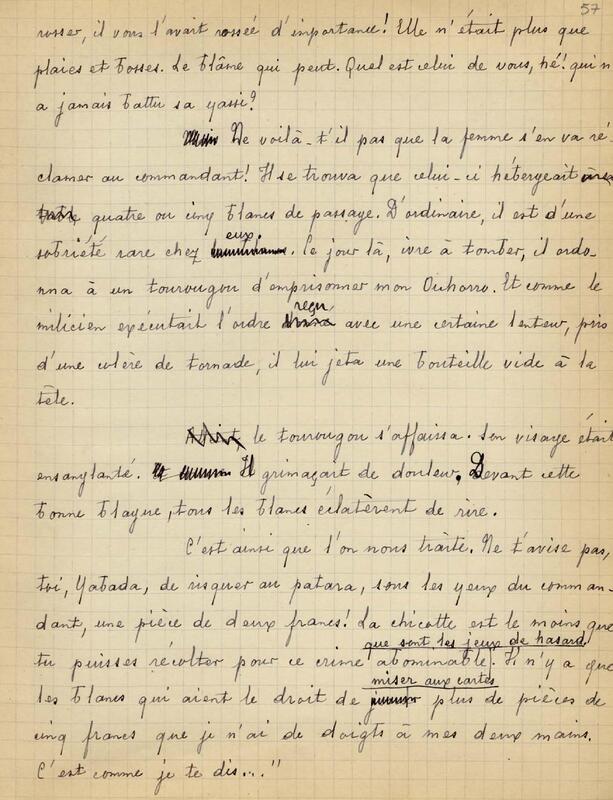 57
rosser, il vous l'avait rossée d'importance! Elle n'était plus que
plaies et bosses. Le blâme qui peut. Quel est celui de vous, hé! qui n
a jamais battu sa yassi?
Ne voilà-t'il pas que la femme s'en va ré-
clamer au commandant! Il se trouva que celui-ci hébergeait
quatre ou cinq blancs de passage. D'ordinaire, il est d'une
eux.
sobriété rare chez Ce jour là, ivre à tomber, il ordo-
nna à un tourougou d'emprisonner mon Ouhorro. Et comme le
reçu
milicien exécutait l'ordre avec une certaine lenteur, pris
d'une colère de tornade, il lui jeta une bouteille vide à la
tête.
le tourougou s'affaissa. Son visage était
ensanglanté. Il grimaçait de douleur. Devant cette
bonne blague, tous les blancs éclatèrent de rire.
C'est ainsi que l'on nous traite. Ne t'avise pas,
toi, Yabada, de risquer au patara, sous les yeux du comman-
dant, une pièce de deux francs! La chicotte est le moins que
que sont les jeux de hasard.
tu puisses récolter pour ce crime abominable. Il n'y a que
miser aux cartes
les blancs qui aient le droit de plus de pièces de
cinq francs que je n'ai de doigts à mes deux mains.
C'est comme je te dis..."